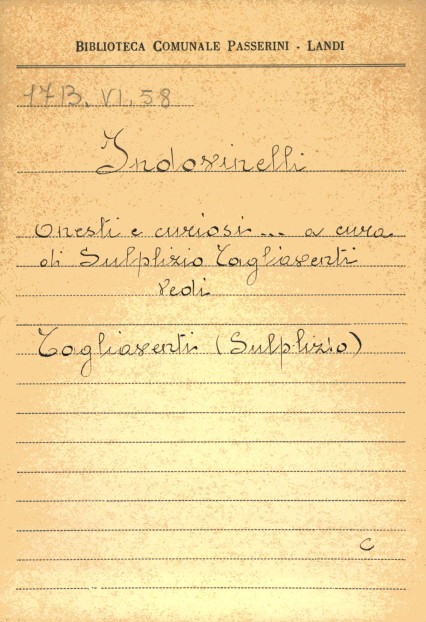 BIBLIOTECA COMUNALE PASSERINI - LANDI
17B. VI. 58
Indovinelli
Onesti e curiosi... a cura
di Sulplizio Tagliaventi
Vedi
Tagliaventi (Sulplizio)
C